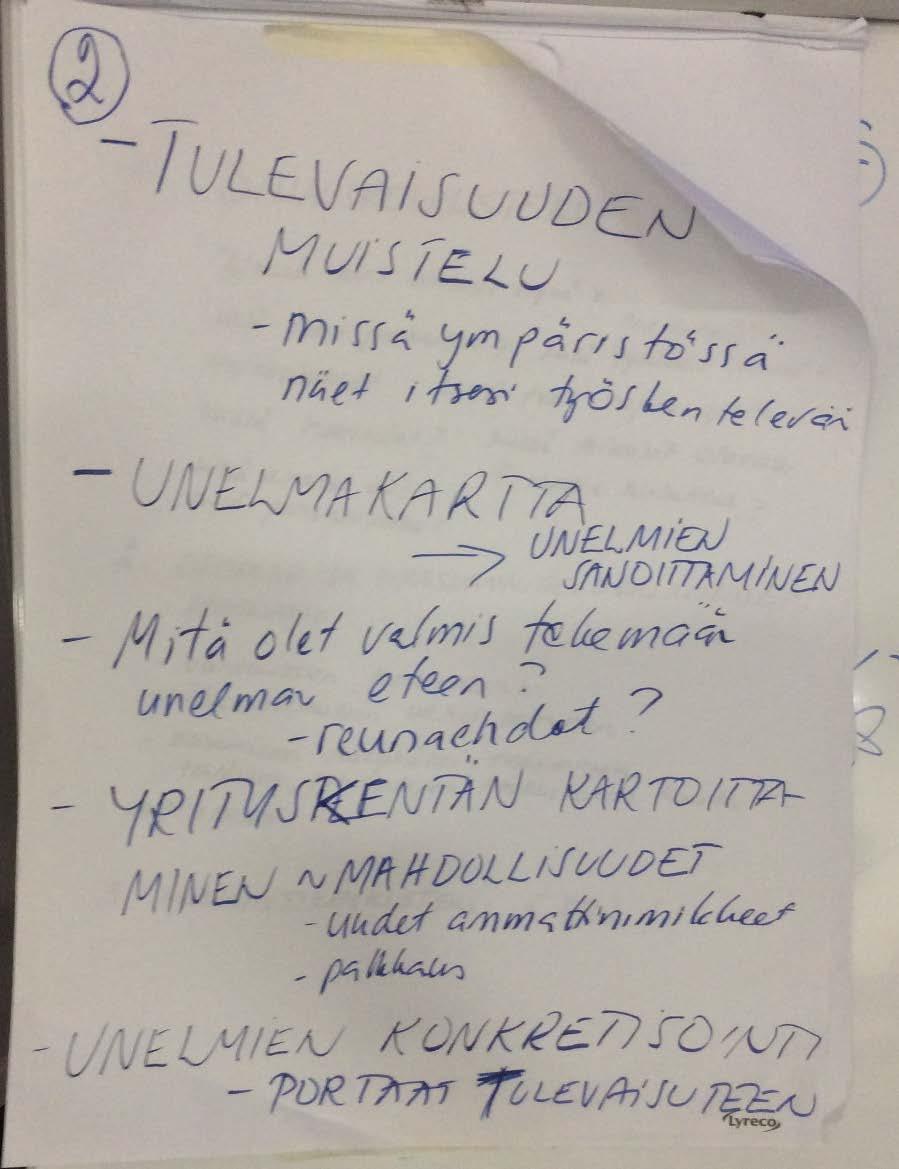 2
- TULEVAISUUDEN
MUISTELU
- missä ympäristössä
näet itsesi työskentelevän
- UNELMAKARTTA
→ UNELMIEN
SANOITTAMINEN
- Mitä olet valmis tekemään
unelmav eteen?
- reunaehdot?
- YRITYSKENTÄN KARTOITTA-
MINEN ~ MAHDOLLISUUDET
- uudet ammattinimikkeet
- palkkaus
- UNELMIEN KONKRETISOINTI
- PORTAAT TULEVAISUTEEN
Lyreco